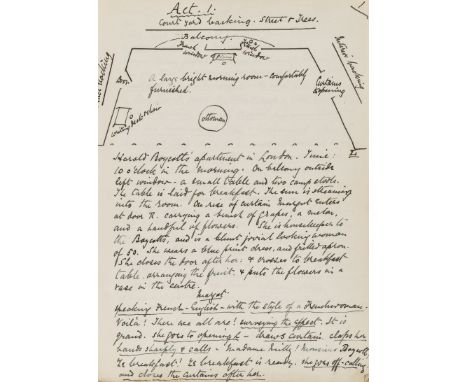 Act. I.
Court yard backing. Street & Trees.
Balcony.
French
window
French
window
Door
A large bright morning room - comfortably
furnished.
Curtains
opening
Interior backing
backing
writing desk & chair
ottoman
Harold Boycott's apartment in London. Time:
10 o'clock in the morning. On balcony outside
left window - a small table and two camp stools.
The table is laid for breakfast. The sun is streaming
into the room. On rise of curtain Margot enters
at door R. carrying a bunch of grapes, a melon,
and a handful of flowers. She is housekeeper to
the Boycotts, and is a blunt jovial looking woman
of 50. She wears a blue print dress, and frilled apron.
She closes the door after her: & crosses to breakfast
table arranging the fruit. & puts the flowers in a
vase in the centre.
Margot.
speaking French-English - with the style of a Frenchwoman.
Voilà! There we all are! surveying the effect. It is
grand. she goes to opening L - draws curtain claps her
hands sharply & calls - Madame Milly! Monsieur Boycott
Ze breakfast! Ze breakfast is ready. she goes off - calling
and closes the curtains after her.